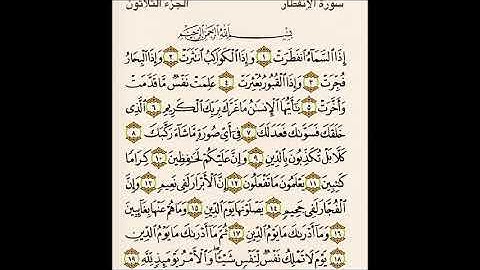 الجزء الثلاثون سورة الإنفطار
بِسْمِ ٱللَّهِ ٱلرَّحْمَٰنِ ٱلرَّحِيمِ
إِذَا ٱلسَّمَآءُ ٱنفَطَرَتْ ١ وَإِذَا ٱلْكَوَاكِبُ ٱنتَثَرَتْ ٢ وَإِذَا ٱلْبِحَارُ
فُجِّرَتْ ٣ وَإِذَا ٱلْقُبُورُ بُعْثِرَتْ ٤ عَلِمَتْ نَفْسٌ مَّا قَدَّمَتْ
وَأَخَّرَتْ ٥ يَٰٓأَيُّهَا ٱلْإِنسَٰنُ مَا غَرَّكَ بِرَبِّكَ ٱلْكَرِيمِ ٦ ٱلَّذِى
خَلَقَكَ فَسَوَّىٰكَ فَعَدَلَكَ ٧ فِىٓ أَىِّ صُورَةٍ مَّا شَآءَ رَكَّبَكَ ٨
كَلَّا بَلْ تُكَذِّبُونَ بِٱلدِّينِ ٩ وَإِنَّ عَلَيْكُمْ لَحَٰفِظِينَ ١٠ كِرَامًا
كَٰتِبِينَ ١١ يَعْلَمُونَ مَا تَفْعَلُونَ ١٢ إِنَّ ٱلْأَبْرَارَ لَفِى نَعِيمٍ ١٣ وَإِنَّ
ٱلْفُجَّارَ لَفِى جَحِيمٍ ١٤ يَصْلَوْنَهَا يَوْمَ ٱلدِّينِ ١٥ وَمَا هُمْ عَنْهَا بِغَآئِبِينَ
١٦ وَمَآ أَدْرَىٰكَ مَا يَوْمُ ٱلدِّينِ ١٧ ثُمَّ مَآ أَدْرَىٰكَ مَا يَوْمُ ٱلدِّينِ
١٨ يَوْمَ لَا تَمْلِكُ نَفْسٌ لِّنَفْسٍ شَيْـًٔا وَٱلْأَمْرُ يَوْمَئِذٍ لِّلَّهِ ١٩